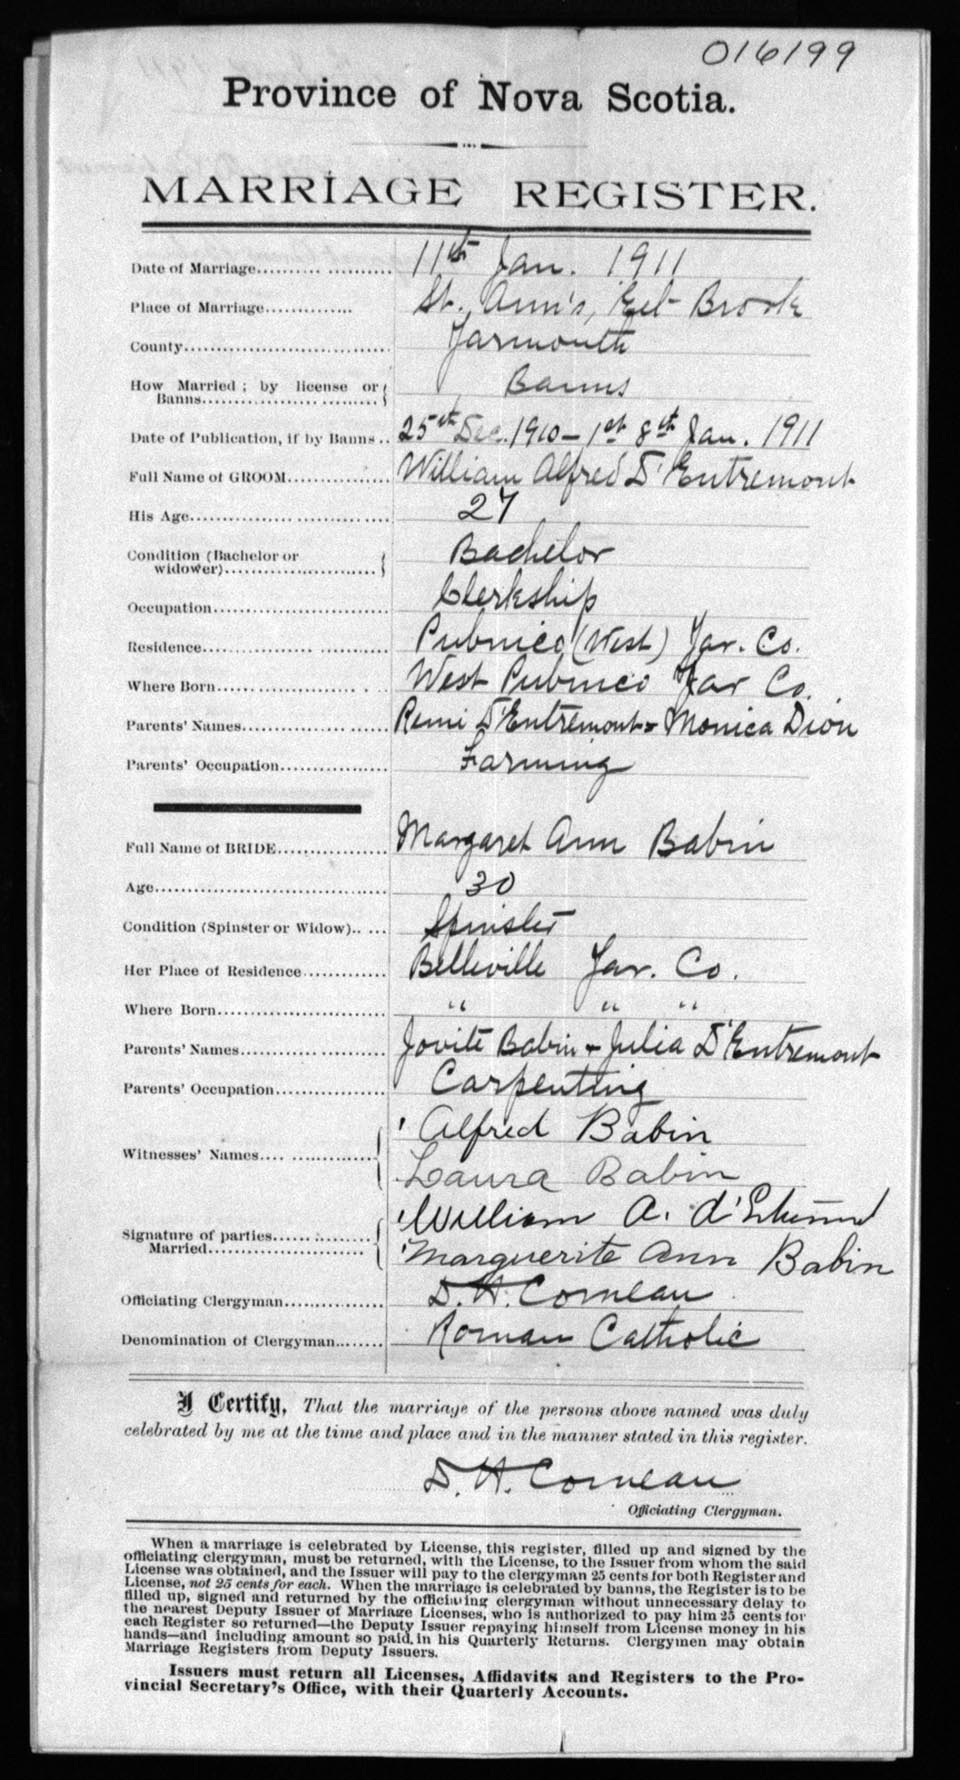 016199
Province of Nova Scotia.
MARRIAGE REGISTER.
Date of Marriage 11th Jan. 1911
Place of Marriage St. Ann's, Eel Brook
County Yarmouth
How Married; by license or
Banns Banns
Date of Publication, if by Banns 25th Dec. 1910 - 1st 8th Jan. 1911
Full Name of GROOM William Alfred D'Entremont
His Age 27
Condition (Bachelor or
widower) Bachelor
Occupation Clerkship
Residence Pubnico (West) Yar. Co.
Where Born West Pubnico Yar Co.
Parents' Names Remi D'Entremont & Monica Dion
Parents' Occupation Farming
Full Name of BRIDE Margaret Ann Babin
Age 30
Condition (Spinster or Widow) Spinster
Her Place of Residence Belleville Yar. Co.
Where Born " " "
Parents' Names Jovite Babin & Julia D'Entremont
Parents' Occupation Carpenting
Witnesses' Names Alfred Babin
Laura Babin
Signature of parties
Married William A. d'
Marguerite Ann Babin
Officiating Clergyman D. H. Comeau
Denomination of Clergyman Roman Catholic
I Certify, That the marriage of the persons above named was duly
celebrated by me at the time and place and in the manner stated in this register.
D. H. Comeau
Officiating Clergyman.
When a marriage is celebrated by License, this register, filled up and signed by the
officiating clergyman, must be returned, with the License, to the Issuer from whom the said
License was obtained, and the Issuer will pay to the clergyman 25 cents for both Register and
License, not 25 cents for each. When the marriage is celebrated by banns, the Register is to be
filled up, signed and returned by the officiating clergyman without unnecessary delay to
the nearest Deputy Issuer of Marriage Licenses, who is authorized to pay him 25 cents for
each Register so returned—the Deputy Issuer repaying himself from License money in his
hands—and including amount so paid, in his Quarterly Returns. Clergymen may obtain
Marriage Registers from Deputy Issuers.
Issuers must return all Licenses, Affidavits and Registers to the Pro-
vincial Secretary's Office, with their Quarterly Accounts.